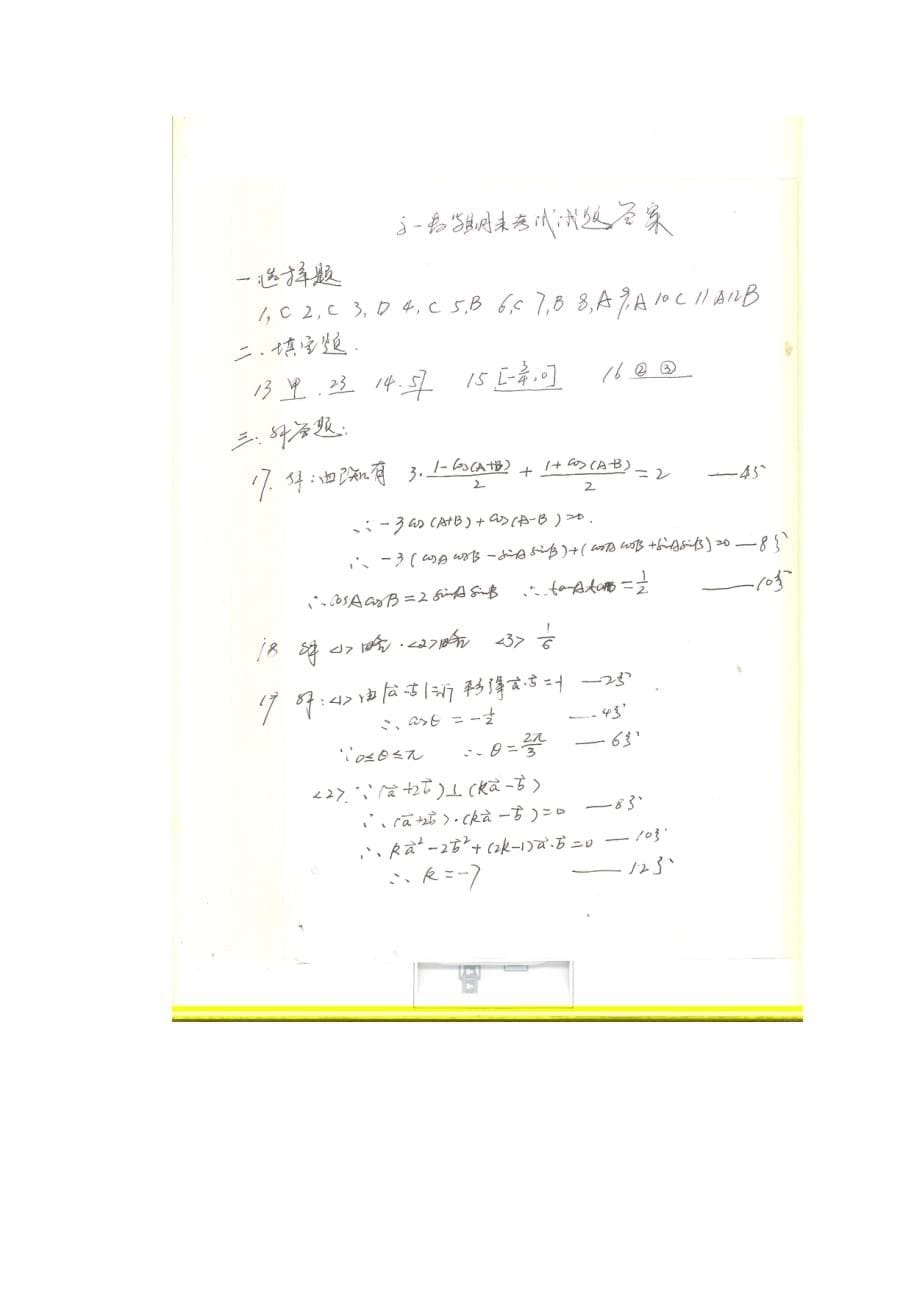 高一数学期末考试试题答案
一.选择题
1,C 2,C 3,D 4,C 5,B 6,C 7,B 8,A 9,A 10 C 11 A 12 B
二.填空题.
13 甲.23 14.57 15 [-3/4,0] 16 ②③
三.解答题:
17.解:由已知有 3·(1-cos(A+B))/2 + (1+cos(A-B))/2 = 2 —4分
∴-3cos(A+B)+cos(A-B)=0.
∴-3(cosAcosB-sinAsinB)+(cosAcosB+sinAsinB)=0 —8分
∴cosAcosB=2sinAsinB ∴tanAtanB=1/2 —10分
18 解<1>略.<2>略 <3> 1/6
19 解:<1>由|a⃗-b⃗|=√7 平方得a⃗·b⃗=-1 —2分
∴cosθ=-1/2 —4分
∵0≤θ≤π ∴θ=2π/3 —6分
<2>.∵(a⃗+2b⃗)⊥(ka⃗-b⃗)
∴(a⃗+2b⃗)·(ka⃗-b⃗)=0 —8分
∴ka⃗²-2b⃗²+(2k-1)a⃗·b⃗=0 —10分
∴k=-7 —12分